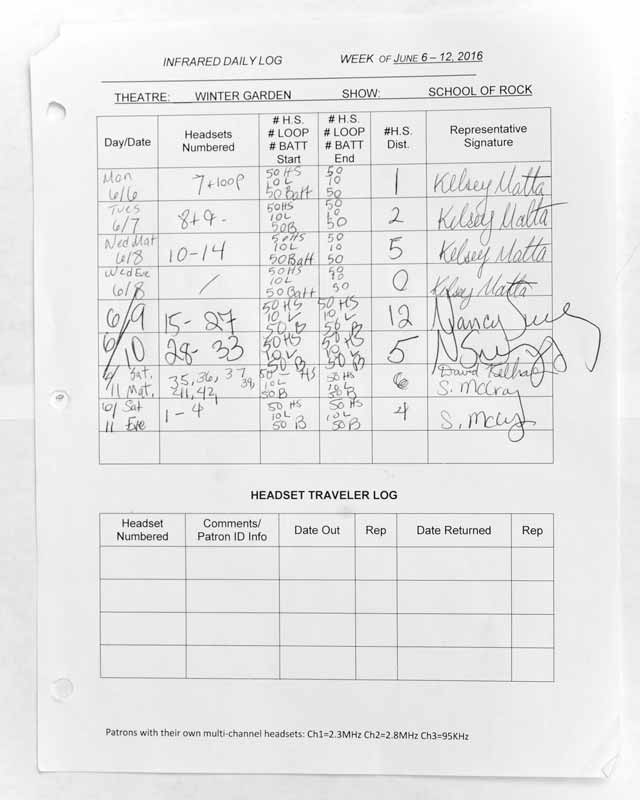 INFRARED DAILY LOG WEEK OF JUNE 6 – 12, 2016
THEATRE: WINTER GARDEN SHOW: SCHOOL OF ROCK
Day/Date
Headsets
Numbered
# H.S.
# LOOP
# BATT
Start
# H.S.
# LOOP
# BATT
End
#H.S.
Dist.
Representative
Signature
Mon
6/6
7+loop
50 HS
10L
50 Batt
50
10
50
1
Kelsey Matta
Tues
6/7
8+9-
50HS
10L
50B
50
10
50
2
Kelsey Matta
Wed Mat
6/8
10-14
50HS
10L
50Batt
50
10
50
5
Kelsey Matta
Wed Eve
6/8
/
50HS
10L
50Batt
50
10
50
0
Kelsey Matta
6/9
15- 27
50 HS
10 L
50 B
50 HS
10 L
50 B
12
Nancy
6/10
28- 33
50 HS
10 L
50 B
50 HS
10 L
50 B
5
Sat.
11 Mat.
35, 36, 37,
39,
41, 42,
50 - HS
10L
50B
50 HS
10L
50B
6
David
S. McCray
6/ Sat
11 Eve
1-4
50 HS
10L
50 B
50 HS
10L
50B
4
S.
HEADSET TRAVELER LOG
Headset
Numbered
Comments/
Patron ID Info
Date Out
Rep
Date Returned
Rep
Patrons with their own multi-channel headsets: Ch1=2.3MHz Ch2=2.8MHz Ch3=95KHz